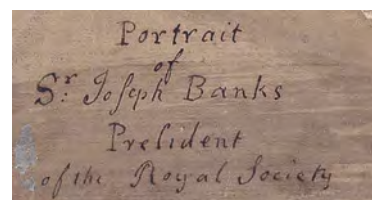 Portrait
of
Sr. Joſeph Banks
Preſident
of the Royal Society